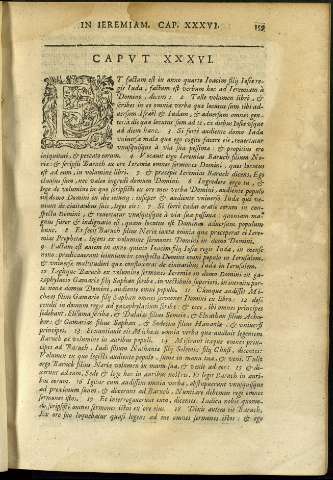 IN IEREMIAM. CAP. XXXVI. 159
CAPVT XXXVI.
ET factum est in anno quarto Ioacim filij Iosie re-
gis Iuda, factum est verbum hoc ad Ieremiam à
Domino, dicens: 2 Tolle volumen libri, &
scribes in eo omnia verba quæ locutus sum tibi ad-
uersum Israël & Iudam, & aduersum omnes gen-
tes: à die qua locutus sum ad te, ex diebus Iosie vsque
ad diem hanc. 3 Si forte audiente domo Iuda
vniuersa mala quæ ego cogito facere eis, reuertatur
vnusquisque à via sua pessima: & propitius ero
iniquitati, & peccato eorum. 4 Vocauit ergo Ieremias Baruch filium Ne-
riæ: & scripsit Baruch ex ore Ieremiæ omnes sermones Domini, quos locutus
est ad eum, in volumine libri. 5 & præcepit Ieremias Baruch dicens, Ego
clausus sum, nec valeo ingredi domum Domini. 6 Ingredere ergo tu, &
lege de volumine in quo scripsisti ex ore meo verba Domini, audiente populo
in domo Domini in die ieiunij: insuper & audiente vniuerso Iuda qui ve-
niunt de ciuitatibus suis, leges eis: 7 Si forte cadat oratio eorum in con-
spectu Domini, & reuertatur vnusquisque à via sua pessima: quoniam ma-
gnus furor & indignatio est, quam locutus est Dominus aduersum populum
hunc. 8 Et fecit Baruch filius Neriæ iuxta omnia quæ præceperat ei Iere-
mias Propheta, legens ex volumine sermones Domini in domo Domini.
9 Factum est autem in anno quinto Ioacim filij Iosie regis Iuda, in mense
nono: prædicauerunt ieiunium in conspectu Domini omni populo in Ierusalem,
& vniuersæ multitudini quæ confluxerat de ciuitatibus Iuda in Ierusalem.
10 Legitque Baruch ex volumine sermones Ieremiæ in domo Domini in ga-
zophylacio Gamariæ filij Saphan scribæ, in vestibulo superiori, in introitu por-
tæ nouæ domus Domini, audiente omni populo. 11 Cumque audisset Mi-
cheas filius Gamariæ filij Saphan omnes sermones Domini ex Libro; 12 des-
cendit in domum regis ad gazophylacium scribæ: & ecce, ibi omnes principes
sedebant: Elisama scriba, & Dalaias filius Semeiæ, & Elnathan filius Acho-
bor, & Gamarias filius Saphan, & Sedecias filius Hananiæ, & vniuersi
principes. 13 Et nuntiauit eis Micheas omnia verba quæ audiuit legentem
Baruch ex volumine in auribus populi. 14 Miserunt itaque omnes princi-
pes ad Baruch, Iudi filium Nathaniæ filij Selemiæ filij Chusi, dicentes:
Volumen ex quo legisti audiente populo, sume in manu tua, & veni. Tulit
ergo Baruch filius Neriæ volumen in manu sua, & venit ad eos: 15 & di-
xerunt ad eum, Sede & lege hæc in auribus nostris. Et legit Baruch in auri-
bus eorum. 16 Igitur cum audissent omnia verba, obstupuerunt vnusquisque
ad proximum suum, & dixerunt ad Baruch, Nuntiare debemus regi omnes
sermones istos. 17 Et interrogauerunt eum, dicentes: Indica nobis quomo-
do scripsisti omnes sermones istos ex ore eius. 18 Dixit autem eis Baruch,
Ex ore suo loquebatur quasi legens ad me omnes sermones istos: & ego